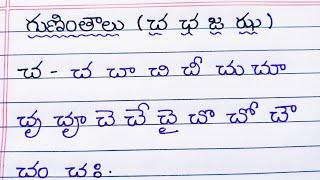 గుణింతాలు (చ ఛ జ ఝ)
చ - చ చా చి చీ చు చూ
చృ చౄ చె చే చై చొ చో చౌ
చం చః.